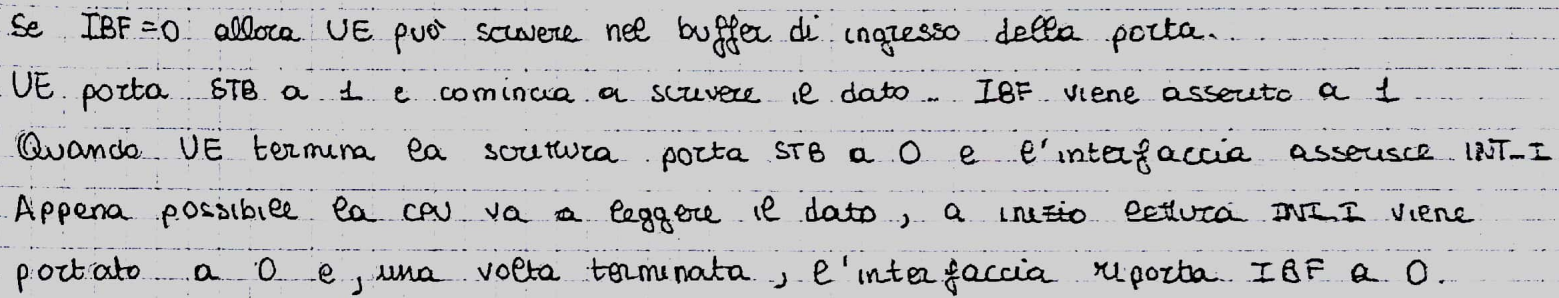 Se IBF=0 allora UE può scrivere nel buffer di ingresso della porta.
UE porta STB a 1 e comincia a scrivere il dato. IBF viene asserito a 1
Quando UE termina la scrittura porta STB a 0 e l'interfaccia asserisce INT_I
Appena possibile la CPU va a leggere il dato, a inizio lettura INT_I viene
portato a 0 e, una volta terminata, l'interfaccia riporta IBF a 0.